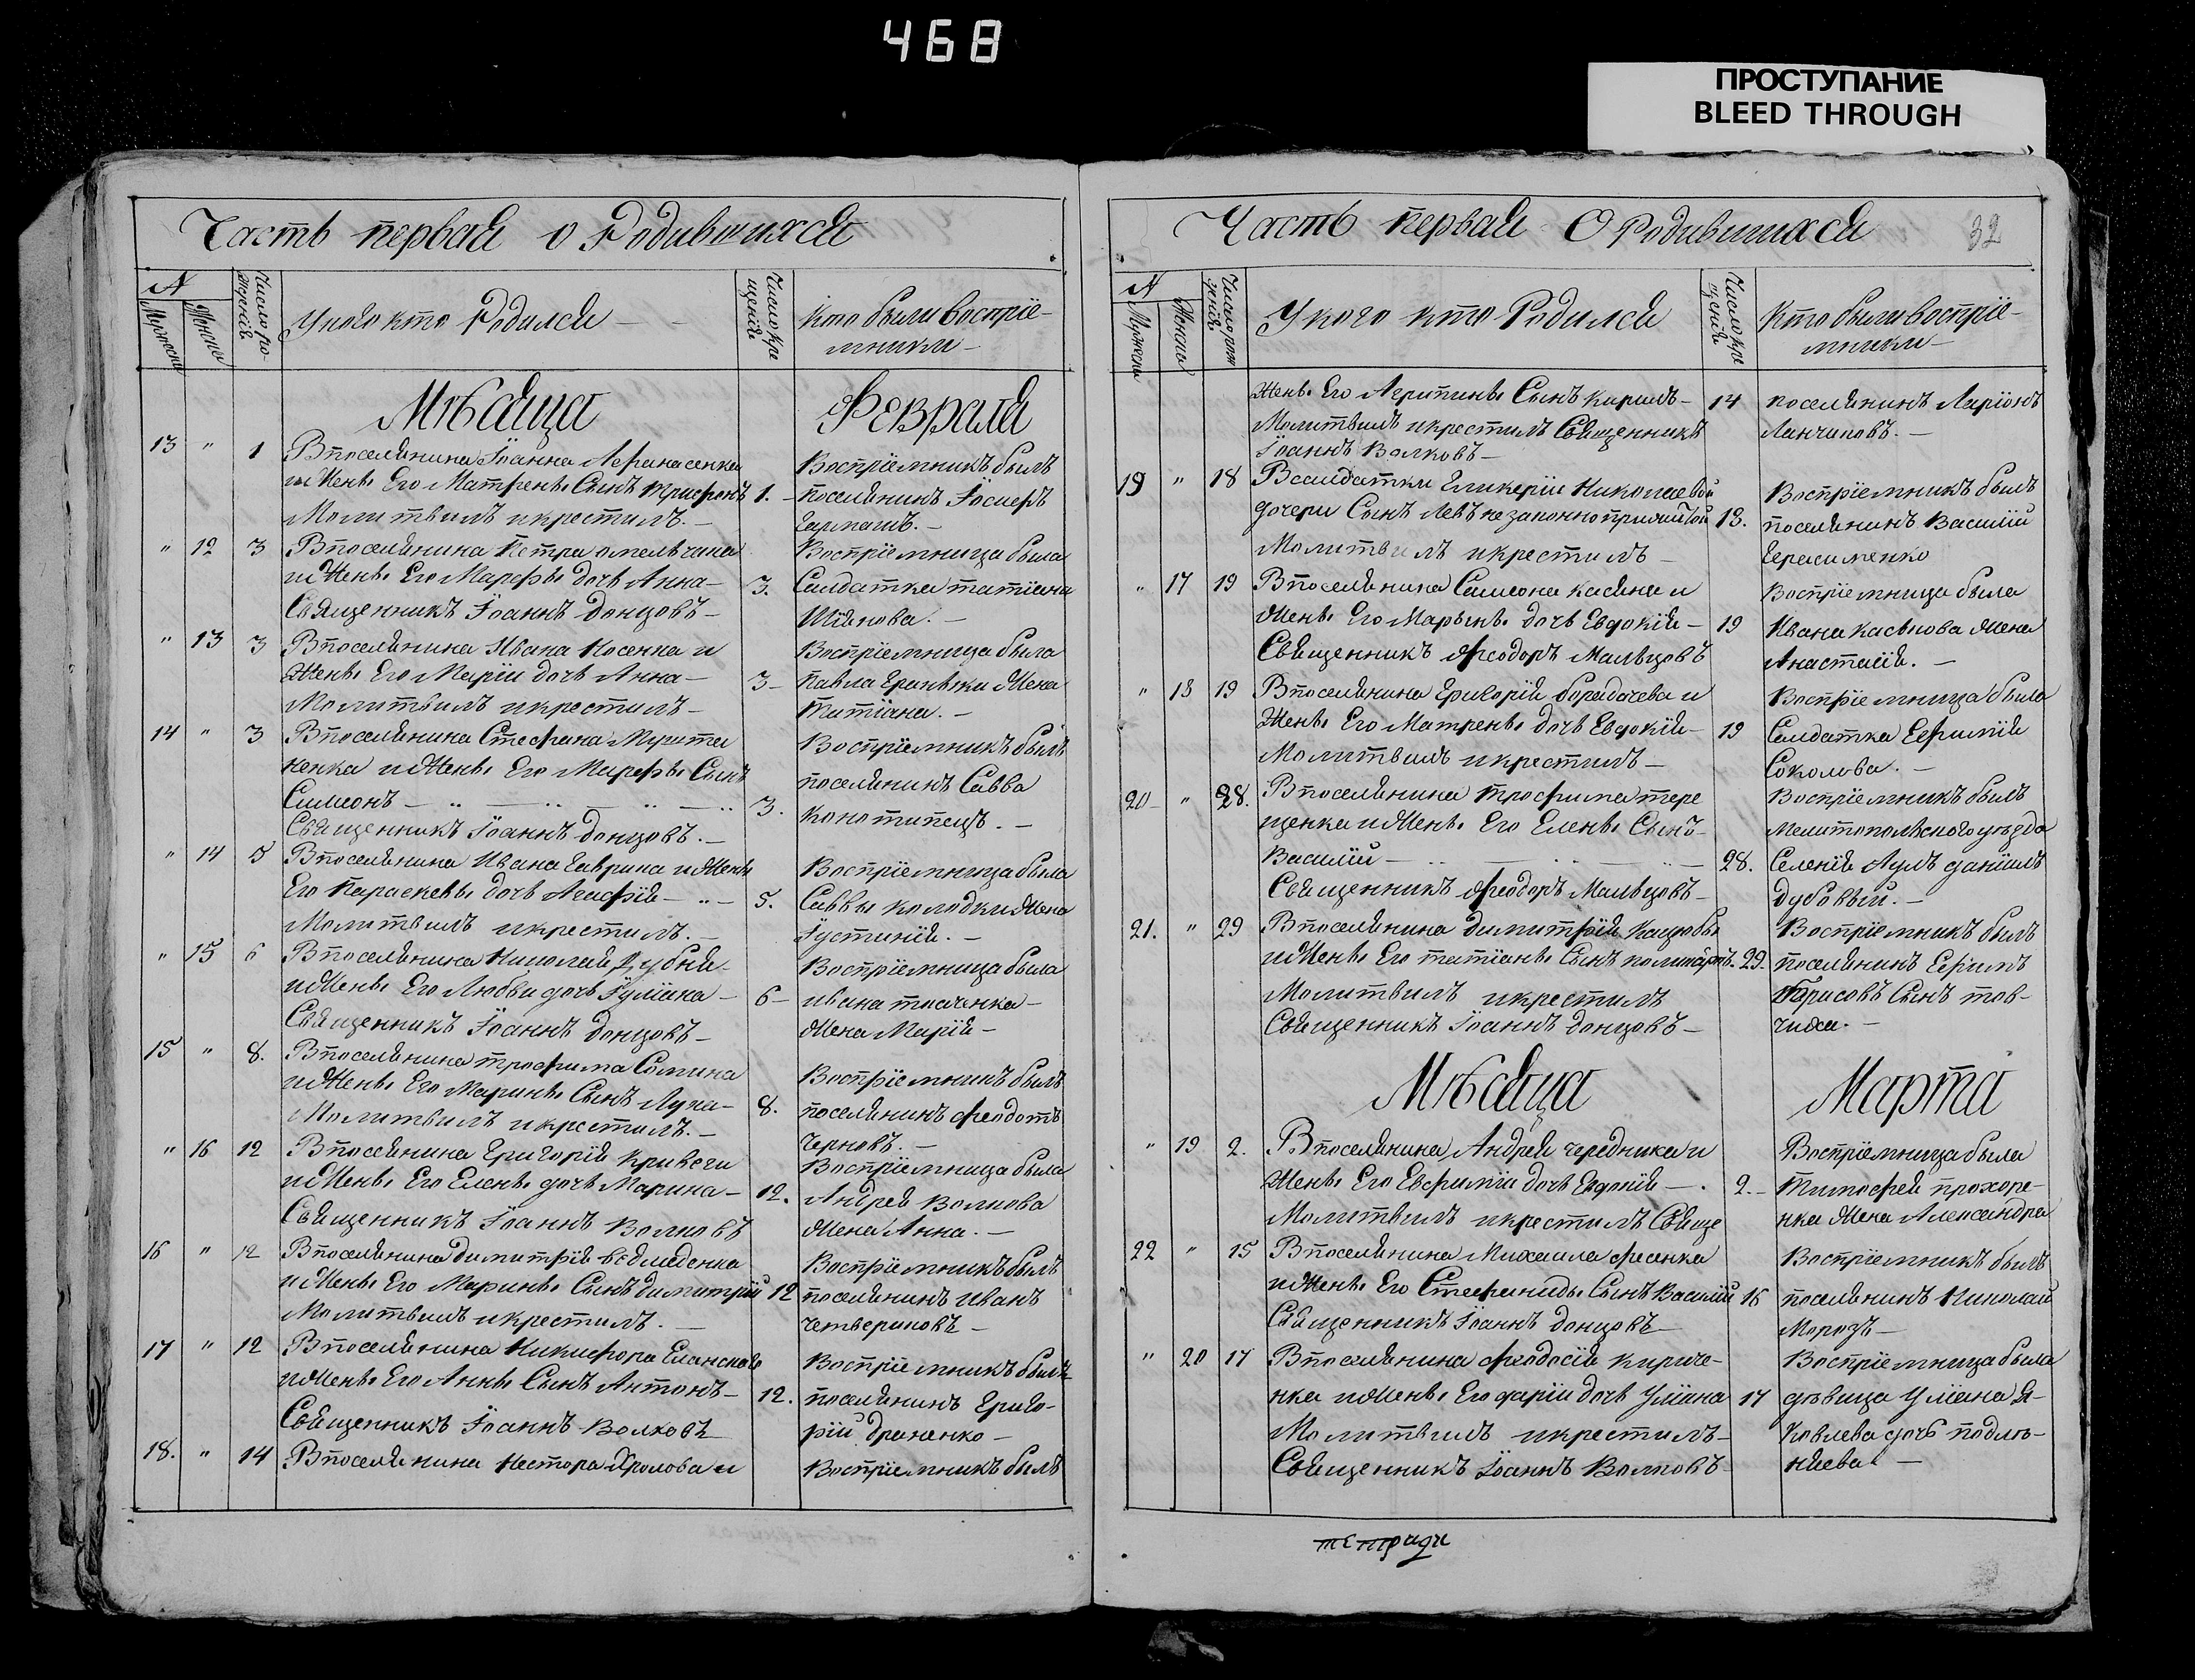 468
ПРОСТУПАНИЕ
BLEED THROUGH
Часть первая о Родившихся
№
Мужеска
Женска
Число ро-
жденія
У кого кто Родился
Число кре
щенія
Кто были воспріе-
мники
Мѣсяца Февраля
13 " 1 В поселянина Іоанна Афанасенка
и Женѣ Его Матренѣ Сынъ Трифонъ 1.
Молитвилъ и крестилъ.
Воспріемникъ былъ
поселянинъ Іосифъ
Гармашъ.
" 12 3 В поселянина Петра омельчика
и Женѣ Его Марфѣ дочь Анна 3.
Священникъ Іоаннъ Донцовъ
Воспріемница была
Салдатка татіана
" 13 3 В поселянина Ивана Косенка и
Женѣ Его Маріи дочь Анна 3
Молитвилъ и крестилъ
Воспріемница была
Павла Жена
Татіана.
14 " 3 В поселянина Стефана Мирота
ненка и Женѣ Его Марфѣ Сынъ
Симеонъ 3.
Священникъ Іоаннъ Донцовъ.
Воспріемникъ былъ
поселянинъ Савва
Конотипецъ.
" 14 5 В поселянина Ивана Гаврика и Женѣ
Его Параскевѣ дочь Агафія 5.
Молитвилъ и крестилъ.
Воспріемница была
Саввы колодки Жена
Іустинія.
" 15 6 В поселянина Николая Дубня
и Женѣ Его Любви дочь Іуліана 6
Священникъ Іоаннъ Донцовъ
Воспріемница была
ивана ткаченка
Жена Марія
15 " 8. В поселянина трофима Сомина
и Женѣ Его Маринѣ Сынъ Лука 8.
Молитвилъ и крестилъ.
Воспріемникъ былъ
поселянинъ Феодотъ
Черновъ.
" 16 12 В поселянина Григорія Кривеги
и Женѣ Его Еленѣ дочь Марина 12.
Священникъ Іоаннъ Волковъ
Воспріемница была
Андрея Волкова
Жена Анна.
16 " 12 В поселянина димитрія Ведмеденка
и Женѣ Его Маринѣ Сынъ димитрій 12
Молитвилъ и крестилъ.
Воспріемникъ былъ
поселянинъ Иванъ
Четвериковъ
17 " 12 В поселянина Никифора Еланскаго
и Женѣ Его Аннѣ Сынъ Антонъ 12.
Священникъ Іоаннъ Волковъ
Воспріемникъ былъ
поселянинъ Григо-
рій драненко
18. " 14 В поселянина Нестора Фролова и
Воспріемникъ былъ
Часть первая О Родившихся
32
№
Мужеска
Женска
Число рож
денія
У кого кто Родился
Число кре
щенія
Кто были воспріе-
мники
Женѣ Его Агрипинѣ Сынъ Кирилъ 14
Молитвилъ и крестилъ Священникъ
Іоаннъ Волковъ
поселянинъ Ларіонъ
Ланчиковъ.
19 " 18 В салдатки Гликеріи Николаевой
дочери Сынъ Левъ незаконноприжитой 18.
Молитвилъ и крестилъ
Воспріемникъ былъ
поселянинъ Василій
Герасименко
" 17 19 В поселянина Самсона Касяна и
Женѣ Его Марьянѣ дочь Евдокія 19
Священникъ Феодоръ Мальцовъ
Воспріемница была
Ивана Касьнова Жена
Анастасія.
" 18 19 В поселянина Григорія борадачева и
Женѣ Его Матренѣ дочь Евдокія 19
Молитвилъ и крестилъ
Воспріемница была
Салдатка Ефимія
Соколова.
20 " 28. В поселянина трофима тере
щенка и Женѣ Его Еленѣ Сынъ
Василій 28.
Священникъ Феодоръ Мальцовъ
Воспріемникъ былъ
Мелитопольскаго уѣзда
Селенія Аулъ даніилъ
дубовый.
21. " 29 В поселянина димитрія Кацюбы
и Женѣ Его татіанѣ Сынъ поликарпъ 29
Молитвилъ и крестилъ
Священникъ Іоаннъ Донцовъ
Воспріемникъ былъ
поселянинъ Ефимъ
Борисовъ Сынъ тов-
чиха.
Мѣсяца Марта
" 19 2. В поселянина Андрея чередника и
Женѣ Его Евфиміи дочь Евдокія 2.
Молитвилъ и крестилъ Свяще
Воспріемница была
Тимофея прохоре-
нка Жена Александра
22 " 15 В поселянина Михаила Фесенка
и Женѣ Его Стефанидѣ Сынъ Василій 16
Священникъ Іоаннъ Донцовъ
Воспріемникъ былъ
поселянинъ Николай
Морозъ
" 20 17 В поселянина Феодосія Кириче-
нка и Женѣ Его даріи дочь Уліана 17
Молитвилъ и крестилъ
Священникъ Іоаннъ Волковъ
Воспріемница была
дѣвица Уліана Я-
ковлева дочь
тетради